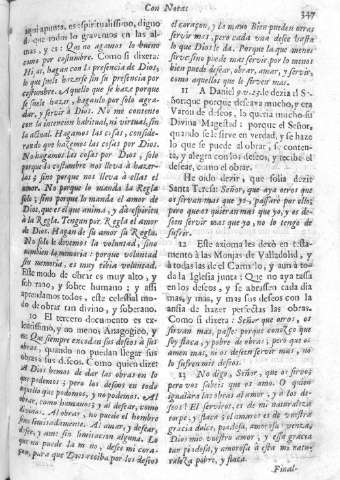 Con Notas
347
aqui apunta, es espiritualissimo, digno
de que todos lo gravemos en las al-
mas, y es: Que no agamos lo bueno
como por costumbre. Como si dixera:
Hijas, hagase con la presencia de Dios,
lo que suele hazerse sin su presencia por
costumbre. Aquello que se haze porque
se suele hazer, hagase por solo agra-
dar, y servir à Dios. No me contento
por la intencion habitual, ni virtual, sin
la actual. Hagamos las cosas, conside-
rando que hazemos las cosas por Dios.
No hagamos las cosas por Dios, solo
porque la costumbre nos lleva à hazer-
las; sino porque nos lleva à ellas el
amor. No porque lo manda la Regla
solo; sino porque lo manda el amor de
Dios, que es el que anima, y dà espiritu
à la Regla. Tengan por Regla el amor
de Dios. Hagan de su amor su Regla.
No solo le llevemos la voluntad, sino
tambien la memoria: porque voluntad
sin memoria, es muy tibia voluntad.
Este modo de obrar es muy alto, y
soberano, y sobre humano; y assi
aprendamos todos, este celestial mo-
do de obrar tan divino, y soberano.
10 El tercero documento es ex-
celentissimo, y no menos Anagogico, y
es: Que siempre encojan sus deseos à sus
obras, quando no puedan llegar sus
obras à sus deseos. Como quien dize:
A Dios hemos de dar las obras en lo
que podemos; pero los deseos en todo
aquello que podemos, y no podemos. Al
obrar, como humanos; y al desear, como
divinos. Al obrar, no puede el hombre
sino limitadamente. Al amar, y desear,
desee, y ame sin limitacion alguna. Lo
que no pueda la mano, desee mi cora-
çon, para que Dios reciba por los deseos
el coraçon, y la mano. Bien pueden otros
servir mas, pero cada uno dese basta
lo que Dios le da. Porque la que menos
sirve, sino puede mas servir por lo menos
bien puede desear, obrar, amar, y servir,
como aquellos que le sirven mas.
11 A Daniel 9. v. 23. le dezia el S-
Señor: que porque deseava mucho, y era
Varon de deseos, lo queria mucho su
Divina Magestad: porque el Señor,
quando se le sirve en verdad, y se haze
lo que se puede al obrar, se conten-
ta, y alegra con los deseos, y recibe el
desear, como el obrar.
He oido dezir, que solia dezir
Santa Teresa: Señor, que aya otros que
os sirvan mas que yo, passarè por ello;
pero que os quieran mas que yo, y os de-
seen servir mas que yo, no lo tengo de
sufrir.
12 Este axioma les dexò en testa-
mento à las Monjas de Valladolid, y
à todas las de el Carmelo, y aun à to-
da la Iglesia junta: Que no aya tassa
en los deseos, y se abrassen cada dia
mas, y mas, y mas sus deseos con la
ansia de hazer perfectas las obras.
Como si dixera: Señor que otros, os
sirvan mas, passe: porque conozco que
soy flaca, y pobre de obras; pero que os
amen mas, ni os deseen servir mas, no
lo sufren mis deseos.
13 No digo, Señor, que os sirvo;
pero vos sabeis que os amo. O quien
igualara las obras al amor, y à los de-
seos! El serviros, es de mi naturaleza
torpe, y flaca; el amaros es de vuestra
gracia dulce, piadosa, amorosa: vença,
Dios mio vuestro amor, y essa gracia
tan piadosa, y amorosa à esta mi natu-
raleza pobre, y flaca.
Final-